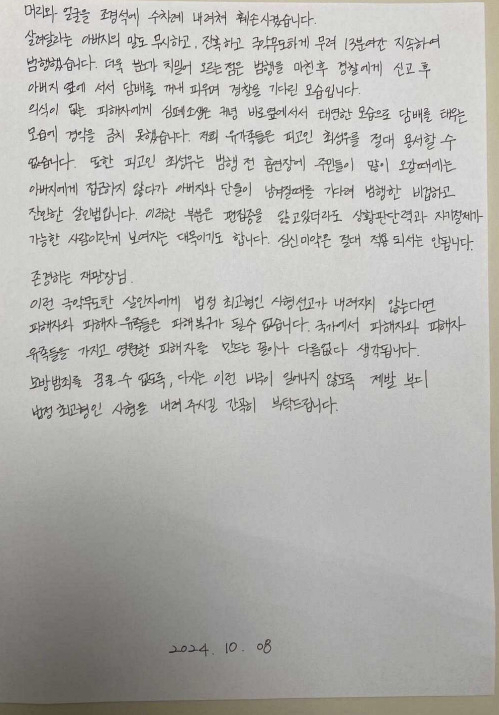 머리와 얼굴을 조경석에 수차례 내려쳐 훼손시켰습니다.
살려달라는 아버지의 말도 무시하고, 잔혹하고 극악무도하게 무려 13분여간 지속하여
범행했습니다. 더욱 분노가 치밀어 오르는점은 범행을 마친후 경찰에게 신고 후
아버지 옆에 서서 담배를 꺼내 피우며 경찰을 기다린 모습입니다.
의식이 없는 피해자에게 심폐소생은 커녕 바로옆에서서 태연한 모습으로 담배를 태우는
모습에 경악을 금치 못했습니다. 저희 유가족들은 피고인 최성우를 절대 용서할 수
없습니다. 또한 피고인 최성우는 범행 전 흡연장에 주민들이 많이 오갈때에는
아버지에게 접근하지 않다가 아버지와 단둘이 남겨질때를 기다려 범행한 비겁하고
잔인한 살인범입니다. 이러한 부분은 편집증을 앓고있더라도 상황판단력과 자기절제가
가능한 사람이란게 보여지는 대목이기도 합니다. 심신미약은 절대 적용 되서는 안됩니다.
존경하는 재판장님.
이런 극악무도한 살인자에게 법정 최고형인 사형선고가 내려지지 않는다면
피해자와 피해자 유족들은 피해복구가 될수 없습니다. 국가에서 피해자와 피해자
유족들을 가지고 영원한 피해자를 만드는 꼴이나 다름없다 생각됩니다.
모방범죄를 꿈꿀 수 없도록, 다시는 이런 비극이 일어나지 않도록 제발 부디
법정 최고형인 사형을 내려 주시길 간곡히 부탁드립니다.
2024. 10. 08